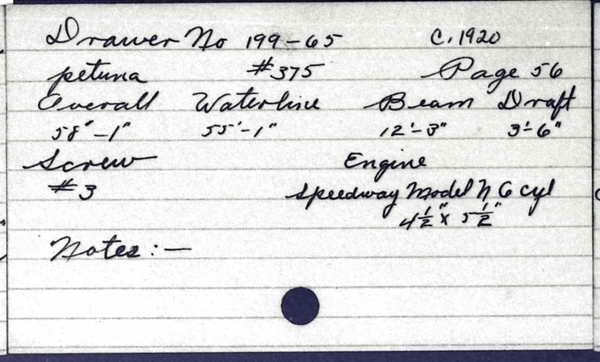 Drawer No 199-65 C. 1920
petuna #375 Page 56
Overall Waterline Beam Draft
58'-1" 55'-1" 12'-3" 3'-6"
Screw Engine
#3 Speedway Model N 6 cyl
4 1/2" x 5 1/2"
Notes:—